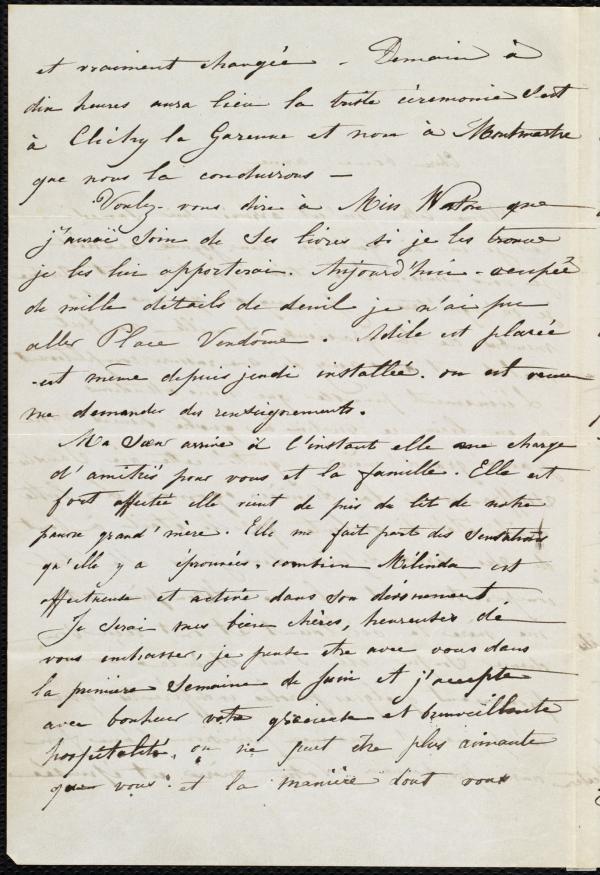 et vraiment changée - Demain à
dix heures aura lieu la triste cérémonie c'est
à Clichy la Garenne et non à Montmartre
que nous la conduirons -
Voulez-vous dire à Miss que
j'aurai soin de ses livres si je les trouve
je les lui apporterai. Aujourd'hui - occupée
de mille détails de deuil je n'ai pu
aller Place Vendôme. Adile est placée
est même depuis jeudi installée. on est venu
me demander des renseignements.
Ma Sœur arrive à l'instant elle me charge
d'amitiés pour vous et la famille. Elle est
fort affectée elle vient de près du lit de notre
pauvre grand'mère. Elle me fait part des sensations
qu'elle y a éprouvées. combien Mélinda est
affectueuse et active dans son dévouement
Je serai mes bien chères, heureuse de
vous embrasser, je pense être avec vous dans
la première semaine de Juin et j'accepte
avec bonheur votre gracieuse et bienveillante
hospitalité, on ne peut être plus aimante
que vous et la manière dont vous